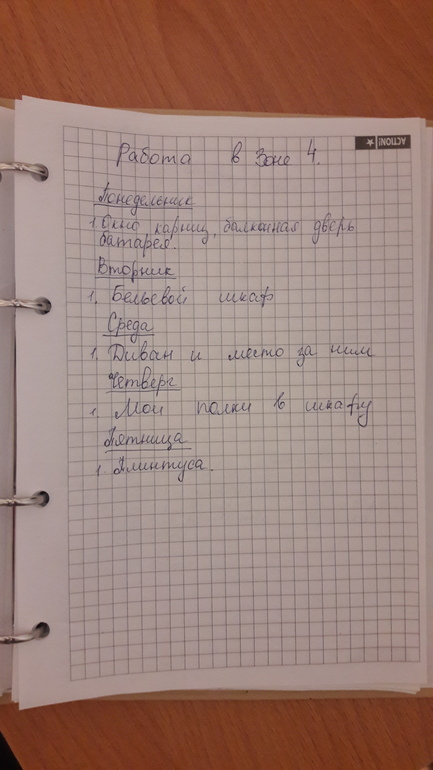 ACTION!
Работа в Зоне 4.
Понедельник
1. Окно карниз, балконная дверь
батарея.
Вторник
1. Бельевой шкаф
Среда
1. Диван и место за ним
Четверг
1. Мои полки в шкафу
Пятница
1. Плинтуса.